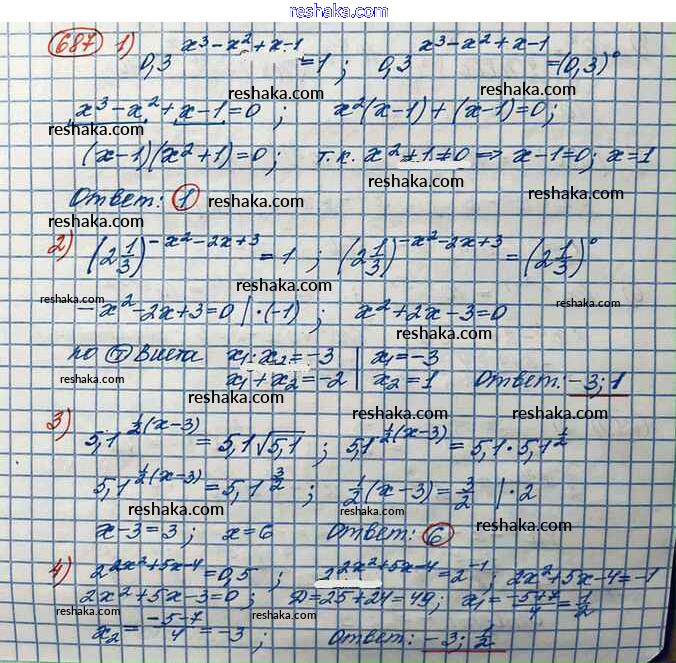 reshak.com
687 1) 0,3^(x³-x²+x-1) = 1 ; 0,3^(x³-x²+x-1) = (0,3)⁰
reshaka.com reshaka.com
x³-x²+x-1=0 ; x²(x-1)+(x-1)=0;
reshaka.com reshaka.com
(x-1)(x²+1)=0; т.к. x²+1≠0 => x-1=0; x=1
reshaka.com
Ответ: 1
reshaka.com reshaka.com
2) (2 1/3)^(-x²-2x+3) = 1 ; (2 1/3)^(-x²-2x+3) = (2 1/3)⁰
reshaka.com reshaka.com reshaka.com
-x²-2x+3=0 |·(-1) ; x²+2x-3=0
reshaka.com
по т Виета x₁·x₂=-3 | x₁=-3
reshaka.com x₁+x₂=-2 | x₂=1 Ответ: -3; 1
reshaka.com reshaka.com
3) 5,1^(½(x-3)) = 5,1√5,1 ; 5,1^(½(x-3)) = 5,1·5,1^½
reshaka.com reshaka.com
5,1^(½(x-3)) = 5,1^(3/2) ; ½(x-3)=3/2 |·2
reshaka.com reshaka.com
x-3=3 ; x=6 Ответ: 6
reshaka.com
4) 2^(2x²+5x-4) = 0,5 ; 2^(2x²+5x-4) = 2⁻¹ ; 2x²+5x-4=-1
reshaka.com
2x²+5x-3=0 ; D=25+24=49; x₁=(-5+7)/4=½
reshaka.com reshaka.com reshaka.com
x₂=(-5-7)/4=-3 ; Ответ: -3; ½
reshaka.com